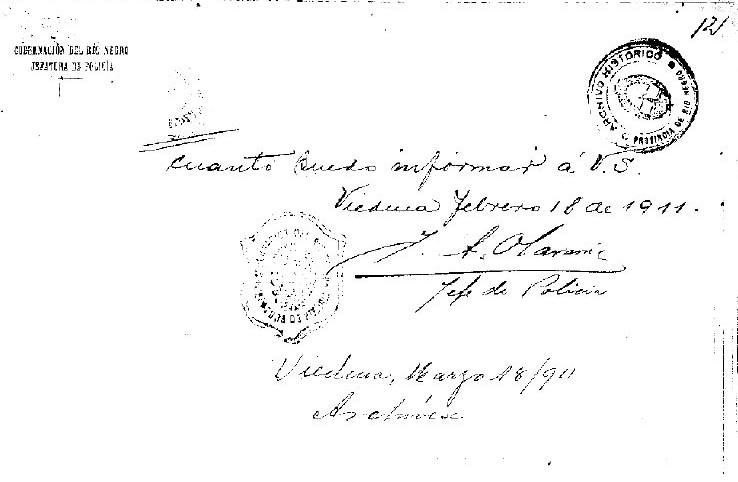 121
GOBERNACIÓN DEL RÍO NEGRO
JEFATURA DE POLICÍA
ARCHIVO HISTORICO
PROVINCIA DE RIO NEGRO
cuanto puedo informar á V.S.
Viedma Febrero 18 de 1911.
J. A.
Jefe de Policia
Viedma, Marzo 18/911
Archívese